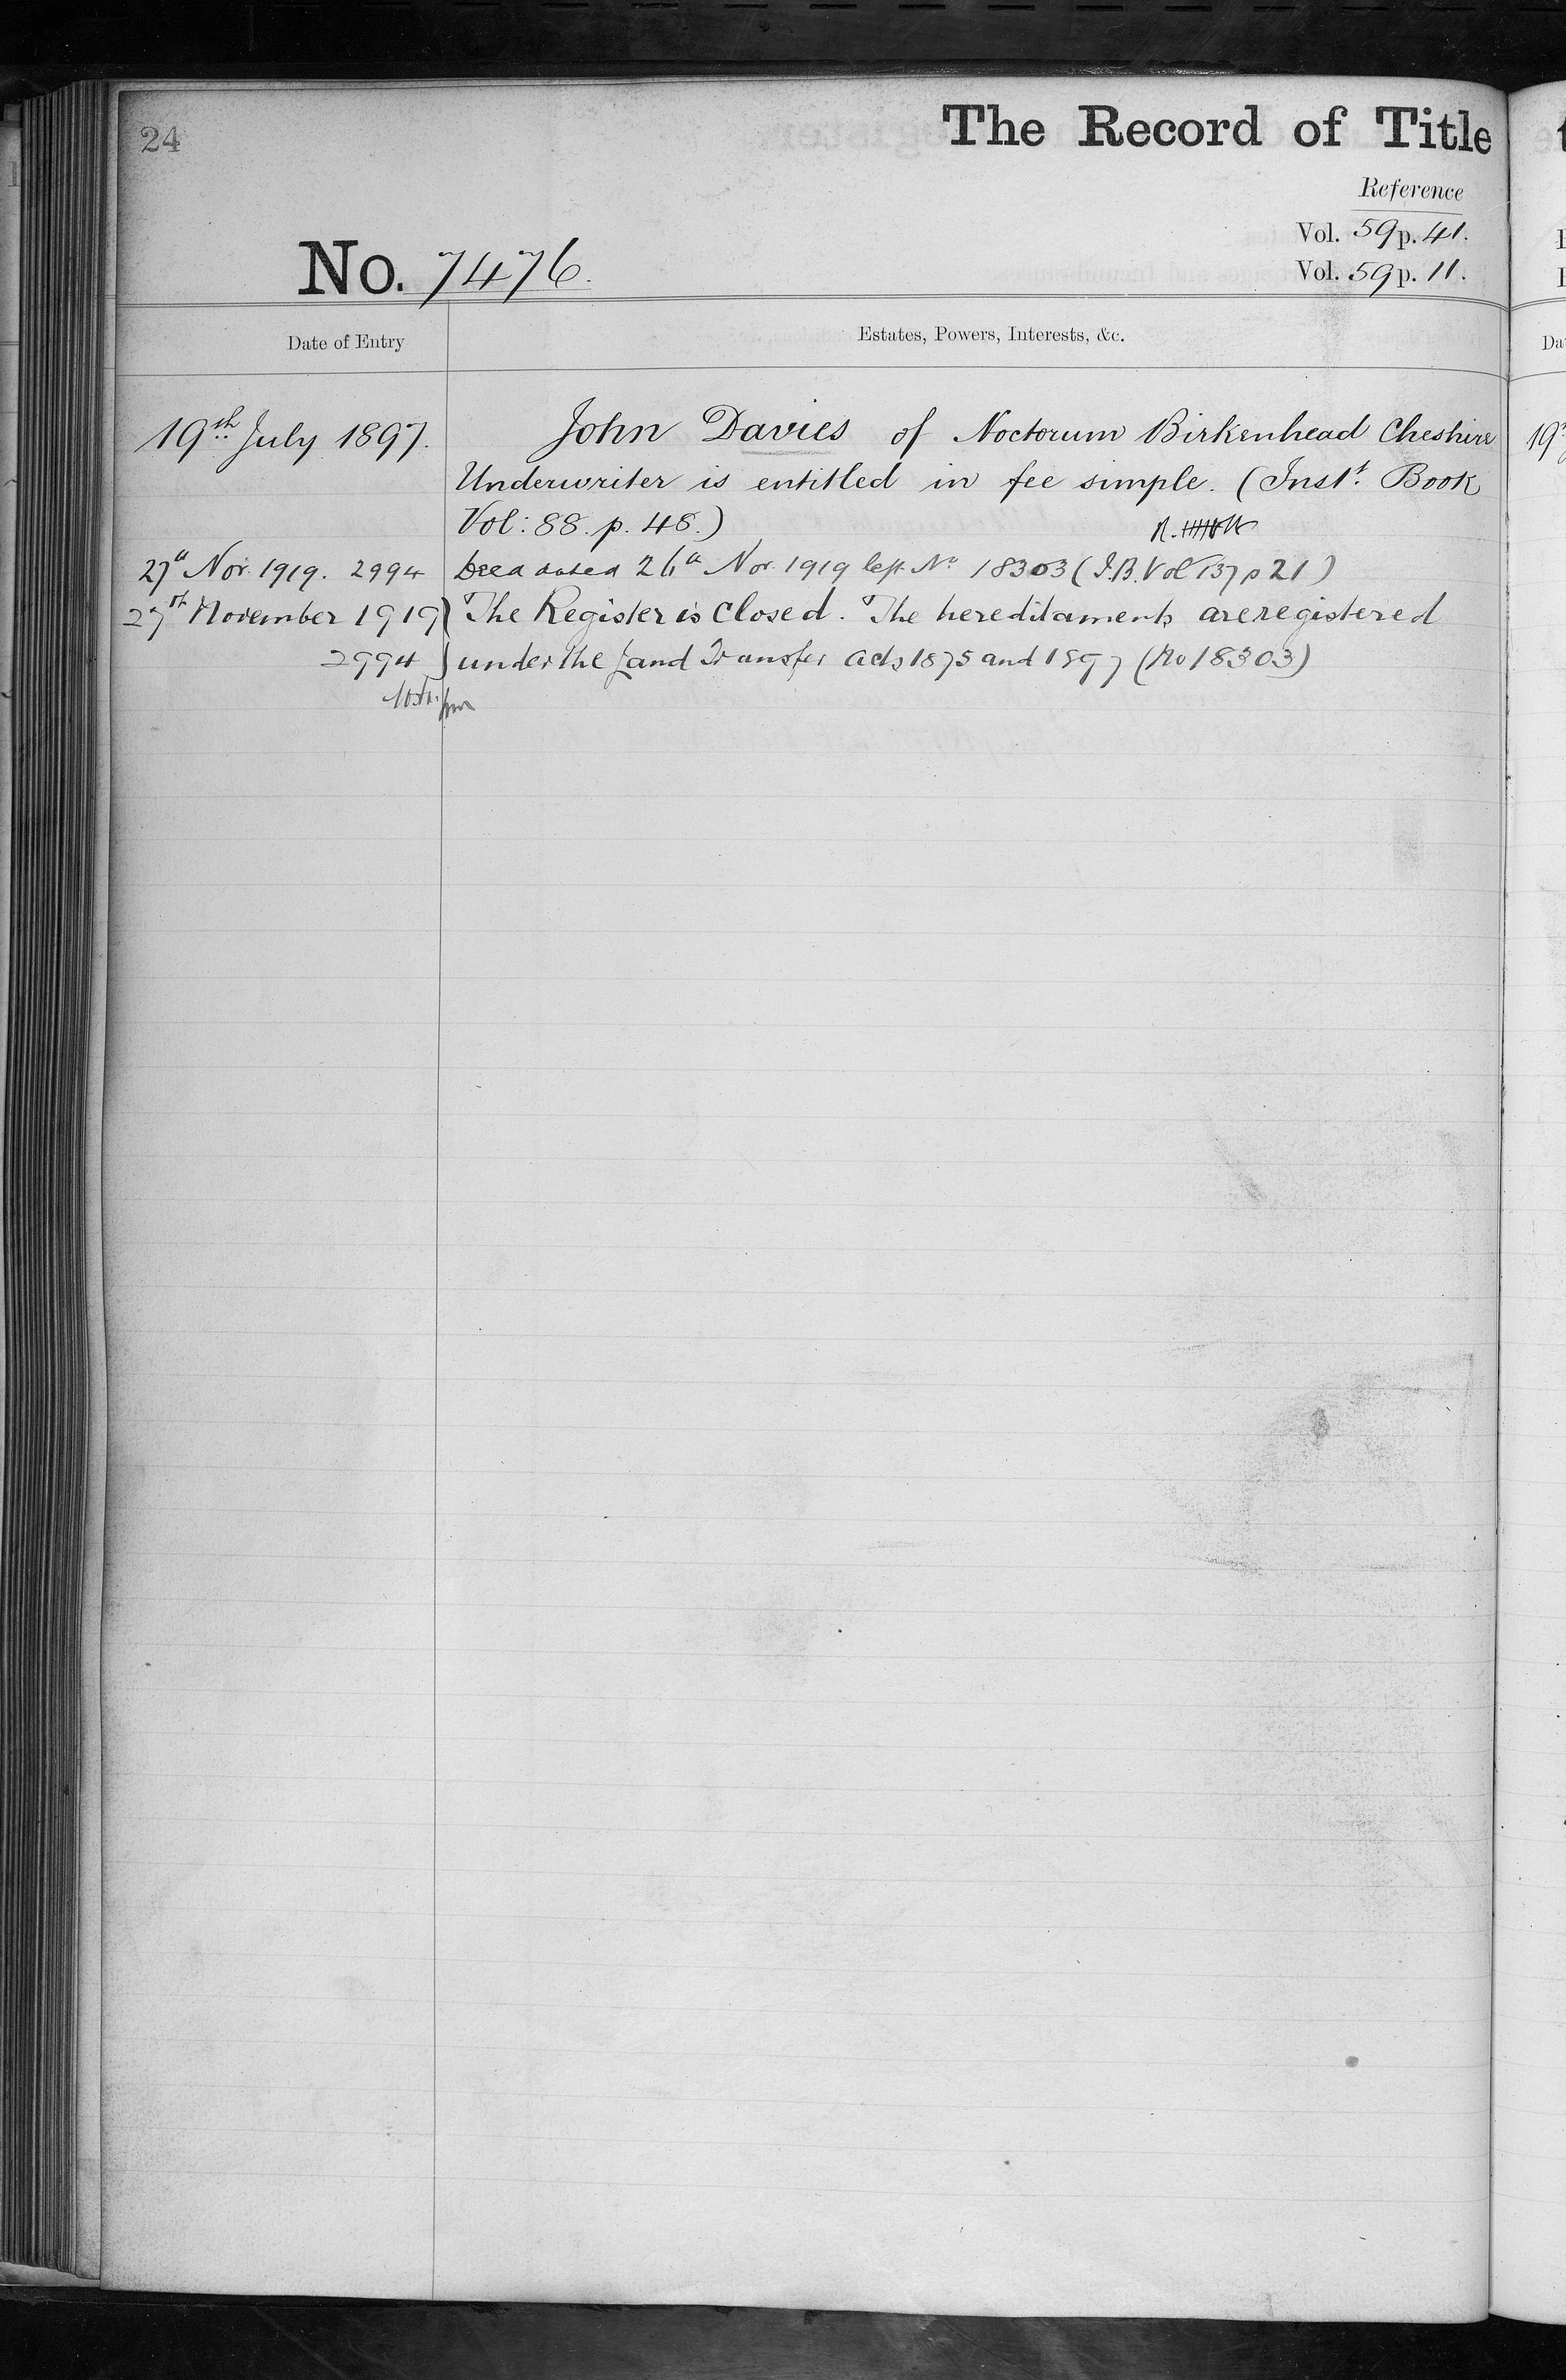 24
The Record of Title
Reference
Vol. 59 p. 41.
No. 7476.
Vol. 59 p. 11.
Date of Entry
Estates, Powers, Interests, &c.
19th July 1897. John Davies of Noctorum Birkenhead Cheshire
Underwriter is entitled in fee simple. (Inst. Book
Vol: 88. p. 48.)
27th Nov. 1919. 2994 Deed dated 26th Nov 1919 left No 18303 (I.B. Vol 137 p 21)
27th November 1919) The Register is Closed. The hereditaments are registered
2994 ) under the Land Transfer Acts 1875 and 1897 (No 18303)